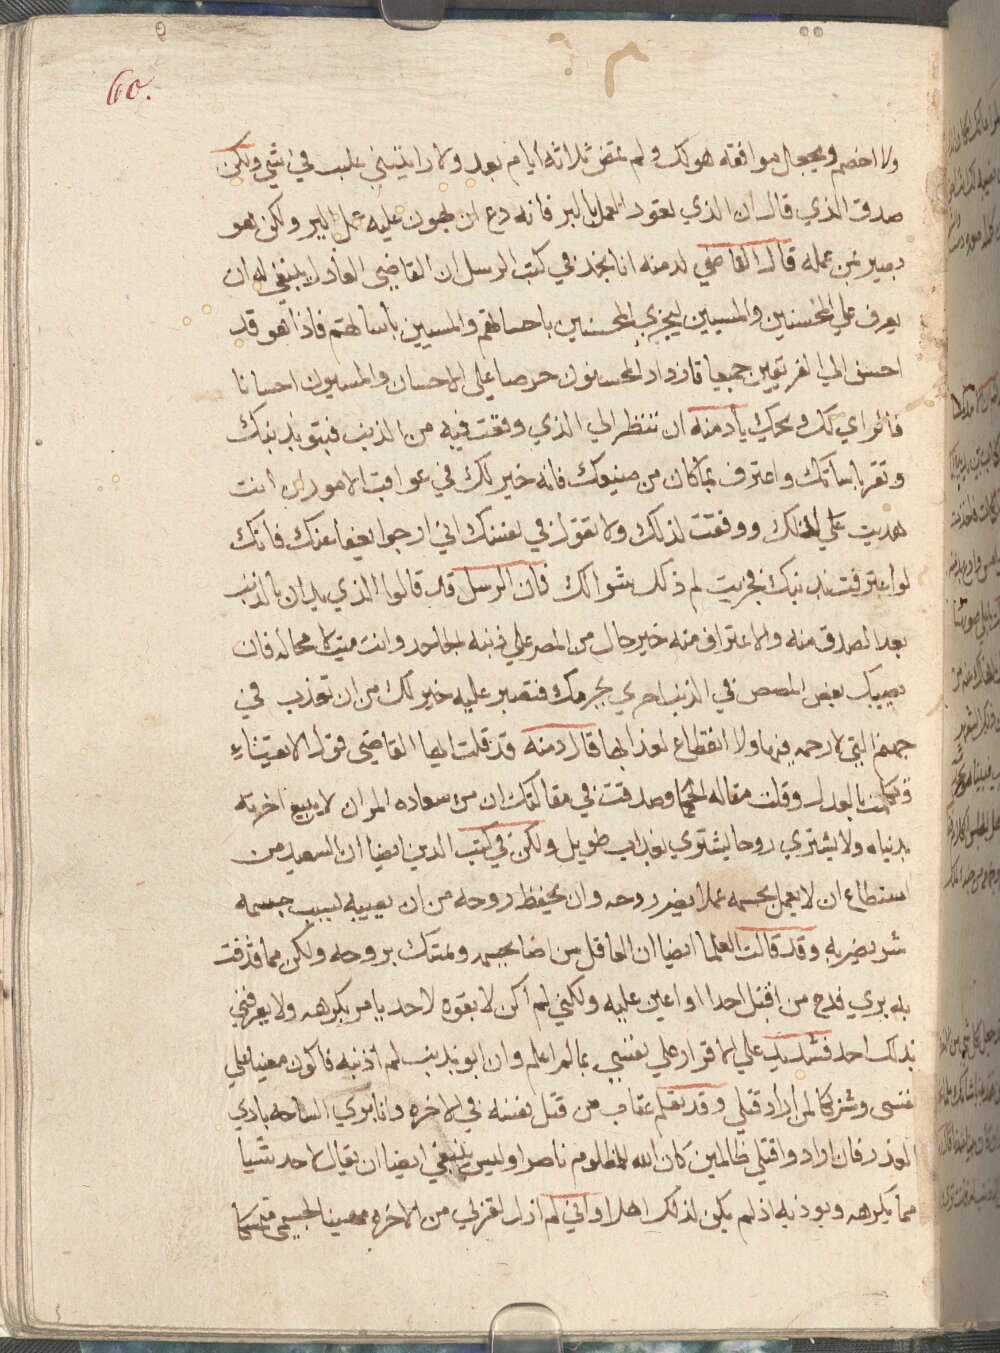 60.
ولا اخصم ويعجل موافقه هولك ولم تمض ثلاثه ايام بعد ولا رايتني علبت في شي ولكن
صدق الذي قال ان الذي يعود العمل بالبر فانه دع ان يهون عليه عمل البر ولكن هو
بصير من عمله قال القاضي لدمنه انا نجد في كتب الرسل ان القاضي العادل ينبغي له ان
يعرف علي المحسنين والمسيين ليجزي المحسنين باحسانهم والمسيين باساتهم فاذا هو قد
احسن الي الفريقين جميعا فازداد المحسنون حرصا علي الاحسان والمسيون احسانا
فالراي لك ويحك يا دمنه ان تنظر الي الذي وقعت فيه من الذنب فتبو بذنبك
وتقر باساتك واعترف بما كان من صنيعك فانه خير لك في عواقب الامور ان انت
هديت علي لذلك ووفقت لذلك ولا تقول في نفسك اني ارجوا يعفا عنك فانك
لو اعترفت بذنبك فجزيت لم ذكد بثوالك فان الرسل قد قالوا الذي يدان بالذنب
بعد الصدق منه والاعتراف منه خير حال من المصر علي ذنبه الجاحد وانت ميت لا محاله فان
يصيبك بعض المصص في الذنب احري بجرمك فتصبر عليه خير لك من ان تعذب في
جهنم التي لا رحمه فيها ولا انقطاع لعذابها قال دمنه قد قلت ايها القاضي قول
وتكلمت بالعدل وقلت مقاله الحكما وصدقت في مقالتك ان من سعاده المر ان لا يبيع اخرته
بدنياه ولا يشتري روحا يشتري بعذاب طويل ولكن في كتب الدين ايضا ان السعيد من
استطاع ان لا يعمل بجسمه عملا يضر روحه وان يحفظ روحه من ان يصيبه لسبب جسمه
شر يضر به وقد قالت العلما ايضا ان العاقل من ضا بجسمه وتمسك بروحه ولكن مما قذفت
به بري فدح من اقتل احدا او اعين عليه ولكني لم اكن لا بقوه لاحد يامر بكرهه ولا يعرفني
بذلك احد فشديد علي الاقرار علي نفسي بما لم اعلم وان ابو بذنب لم اذنبه فاكون معينا علي
نفسي وشركا لمن اراد قتلي وقد تعلم عقاب من قتل نفسه في الاخره وانا بري الساحه بادي
العذر فان ارادوا قتلي ظالمين كان الله للمظلوم ناصرا وليس ينبغي ايضا ان يقال لاحد شيا
مما يكرهه ويوذيه اذ لم يكن لذلك اهلا واني لم ازل لقرني من الاخره مهينا لجسمي متمسكا